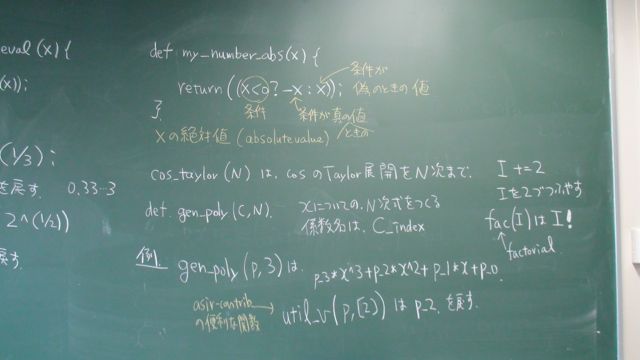 eval (x) {
(x));
(1/3);
を戻す. 0.33…3
2^(1/2))
戻す.
def my_number_abs(x) {
return ((x<0? -x : x));
}.
条件が
偽のときの値
条件
条件が真の値
ときの
xの絶対値 (absolute value)
cos_taylor(N) は, cos のTaylor展開をN次まで.
I += 2
Iを2づつふやす
def gen_poly(C,N).
xについての, N次式をつくる
係数名は, C_index
fac(I)はI!
factorial.
例 gen_poly(p,3) は, p_3*x^3+p_2*x^2+p_1*x+p_0.
asir-contrib
の便利な関数
util_v(p,[2]) は p_2, を戻す.